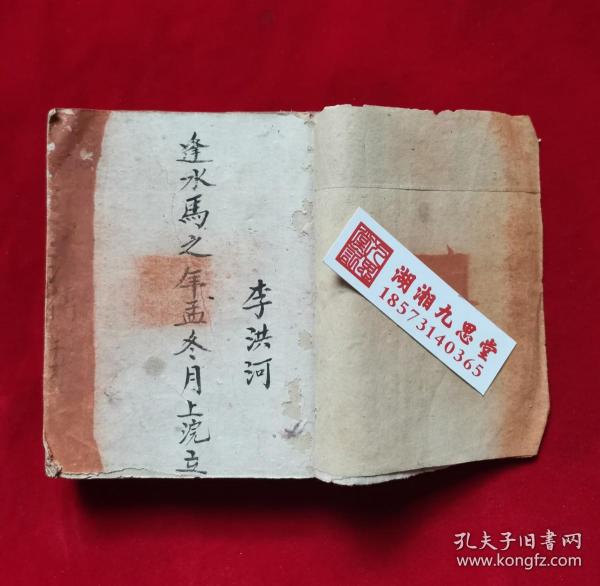 逢水馬之年孟冬月上浣立
李洪河
湖湘九思堂
18573140365
孔夫子旧书网
www.kongfz.com